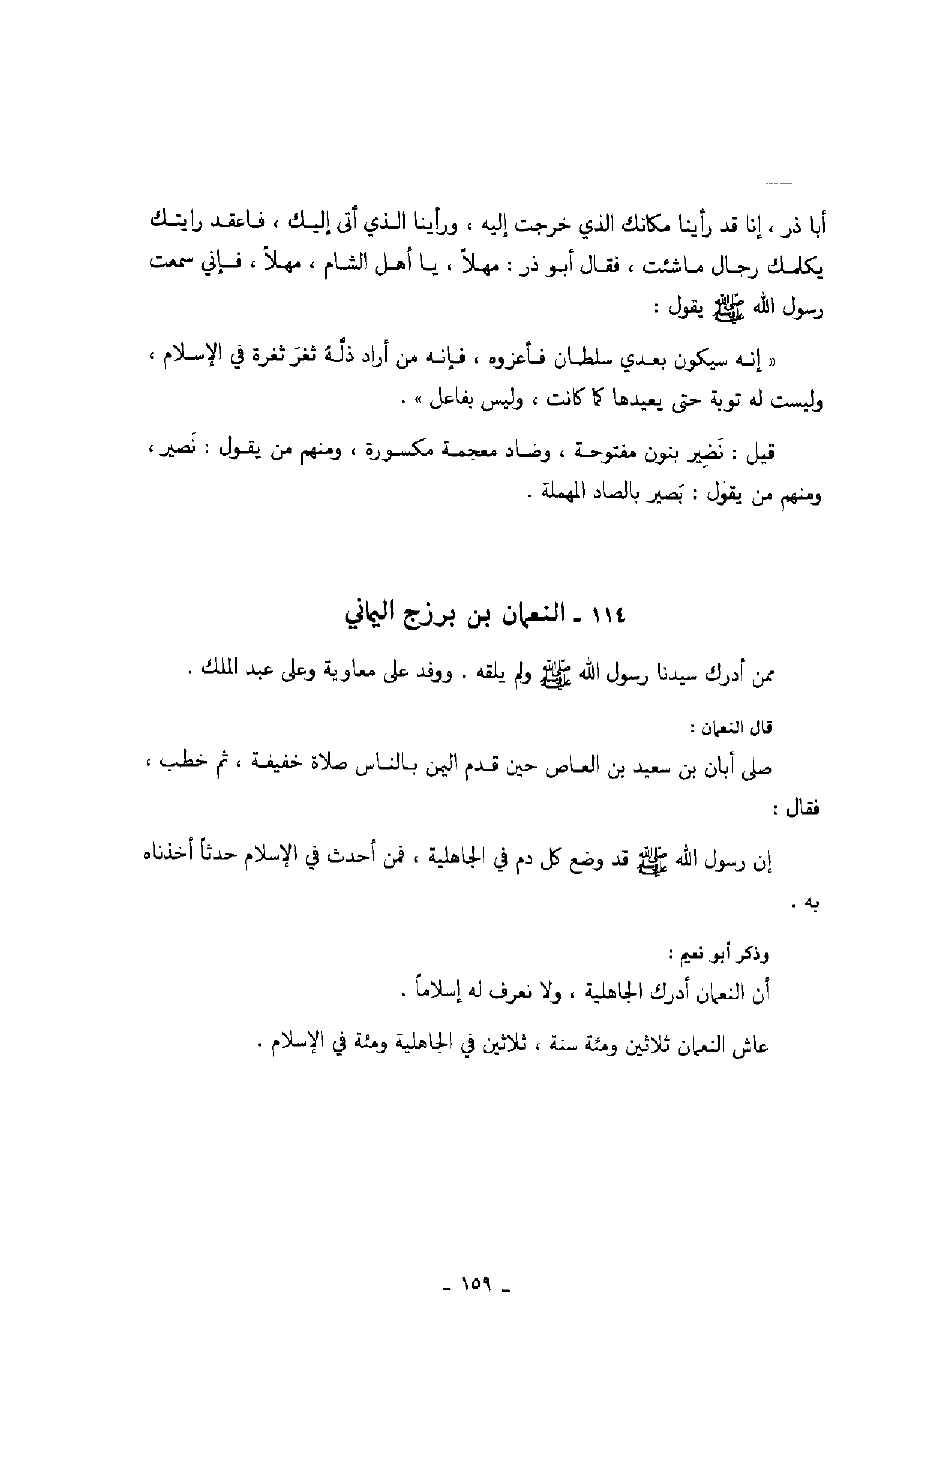 أبا ذر ، إنا قد رأينا مكانك الذي خرجت إليه ، ورأينا الذي أتى إليك ، فاعقد رايتك
يكلمك رجال ماشئت ، فقال أبو ذر : مهلاً ، يا أهل الشام ، مهلاً ، فإني سمعت
رسول الله ﷺ يقول :
« إنه سيكون بعدي سلطان فأعزوه ، فإنه من أراد ذلّهُ ثغرَ ثغرة في الإسلام ،
وليست له توبة حتى يعيدها كما كانت ، وليس بفاعل » .
قيل : نَضِير بنون مفتوحة ، وضاد معجمة مكسورة ، ومنهم من يقول : نَصير ،
ومنهم من يقول : بَصير بالصاد المهملة .
١١٤ ـ النعمان بن برزج اليماني
ممن أدرك سيدنا رسول الله ﷺ ولم يلقه . ووفد على معاوية وعلى عبد الملك .
قال النعمان :
صلى أبان بن سعيد بن العاص حين قدم اليمن بالناس صلاة خفيفة ، ثم خطب ،
فقال :
إن رسول الله ﷺ قد وضع كل دم في الجاهلية ، فمن أحدث في الإسلام حدثاً أخذناه
به .
وذكر أبو نعيم :
أن النعمان أدرك الجاهلية ، ولا نعرف له إسلاماً .
عاش النعمان ثلاثين ومئة سنة ، ثلاثين في الجاهلية ومئة في الإسلام .
ـ ١٥٩ ـ